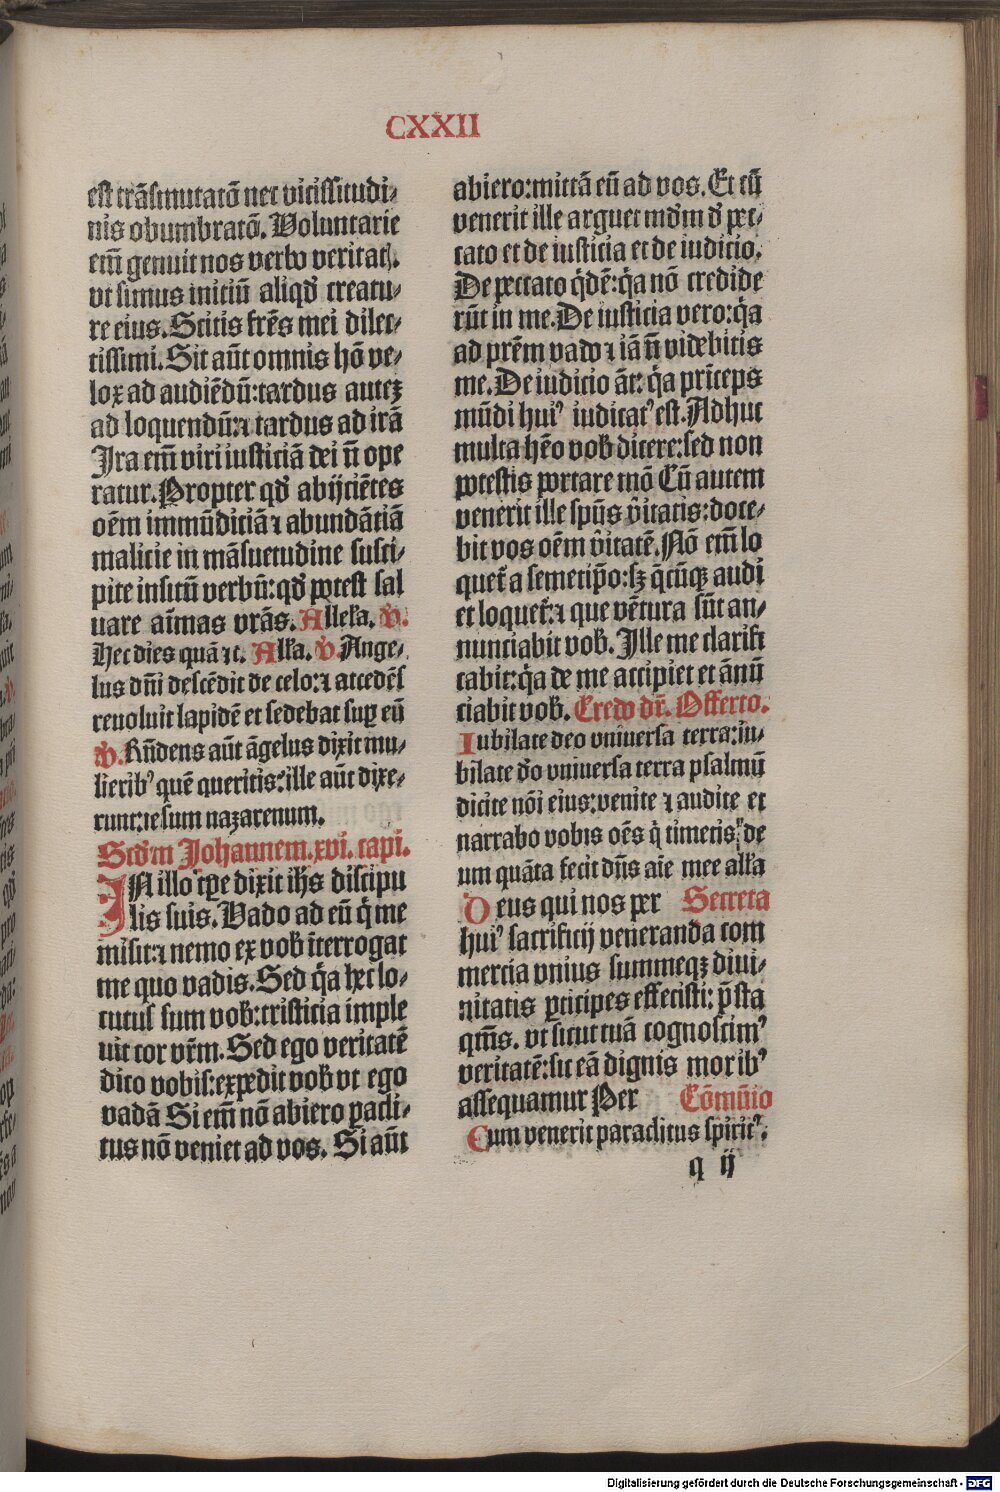 CXXII
est trãsmutatõ nec vicissitudi⸗
nis obumbratõ. Voluntarie
em̃ genuit nos verbo veritatꝭ.
vt simus initiũ aliqđ creatu⸗
re eius. Scitis frẽs mei dilec⸗
tissimi. Sit aũt omnis hõ ve⸗
lox ad audiẽdũ: tardus auteꝫ
ad loquendũ: ⁊ tardus ad irã
Ira em̃ viri iusticiã dei ñ ope
ratur. Propter qđ abijciẽtes
oẽm immũdiciã ⁊ abundãtiã
malicie in mãsuetudine susci⸗
pite insitũ verbũ: qđ potest sal
uare aĩmas vrãs. Alleła. ꝟ.
Hec dies quã ⁊c. Alła. ꝟ. Ange⸗
lus dñi descẽdit de celo: ⁊ accedẽs
reuoluit lapidẽ et sedebat suꝑ eũ
ꝟ. Rñdens aũt ãgelus dixit mu⸗
lieribꝰ quẽ queritis: ille aũt dixe⸗
runt: iesum nazarenum.
Scđm Johannem. xvi. capi.
IN illo tꝑe dixit ihs discipu
lis suis. Vado ad eũ q̇ me
misit: ⁊ nemo ex vob̃ ĩterrogat
me quo vadis. Sed q̃a hec lo⸗
cutus sum vob̃: tristicia imple
uit cor vr̃m. Sed ego veritatẽ
dico vobis: expedit vob̃ vt ego
vadã Si em̃ nõ abiero ꝑacli⸗
tus nõ veniet ad vos. Si aũt
abiero: mittã eũ ad vos. Et cũ
venerit ille arguet mđm đ pec⸗
cato et de iusticia et de iudicio.
De peccato q̇dẽ: q̃a nõ credide
rũt in me. De iusticia vero: q̃a
ad prẽm vado ⁊ iã ñ videbitis
me. De iudicio ãt: q̃a prĩceps
mũdi huiꝰ iudicatꝰ est. Adhuc
multa hẽo vob̃ dicere: sed non
potestis portare mõ Cũ autem
venerit ille spũs v̾itatis: doce⸗
bit vos oẽm v̾itatẽ. Nõ em̃ lo
quet̃ a semetip̃o: sꝫ q̃cũqꝫ audi
et loquet̃: ⁊ que vẽtura sũt an⸗
nunciabit vob̃. Ille me clarifi
cabit: q̃a de me accipiet et ãnũ
ciabit vob̃. Credo dr̃. Offerto.
Iubilate deo vniuersa terra: iu⸗
bilate đo vniuersa terra psalmũ
dicite nõi eius: venite ⁊ audite et
narrabo vobis oẽs q̇ timetis de
um quãta fecit dñs aĩe mee alła
Deus qui nos per Secreta
huiꝰ sacrificij veneranda com
mercia vnius summeqꝫ diui⸗
nitatis ꝑticipes effecisti: p̃sta
qm̃s. vt sicut tuã cognoscimꝰ
veritatẽ: sic eã dignis moribꝰ
assequamur Per Cõmũio
Cum venerit paraclitus spiritꝰ.
q ij
Digitalisierung gefördert durch die Deutsche Forschungsgemeinschaft - DFG